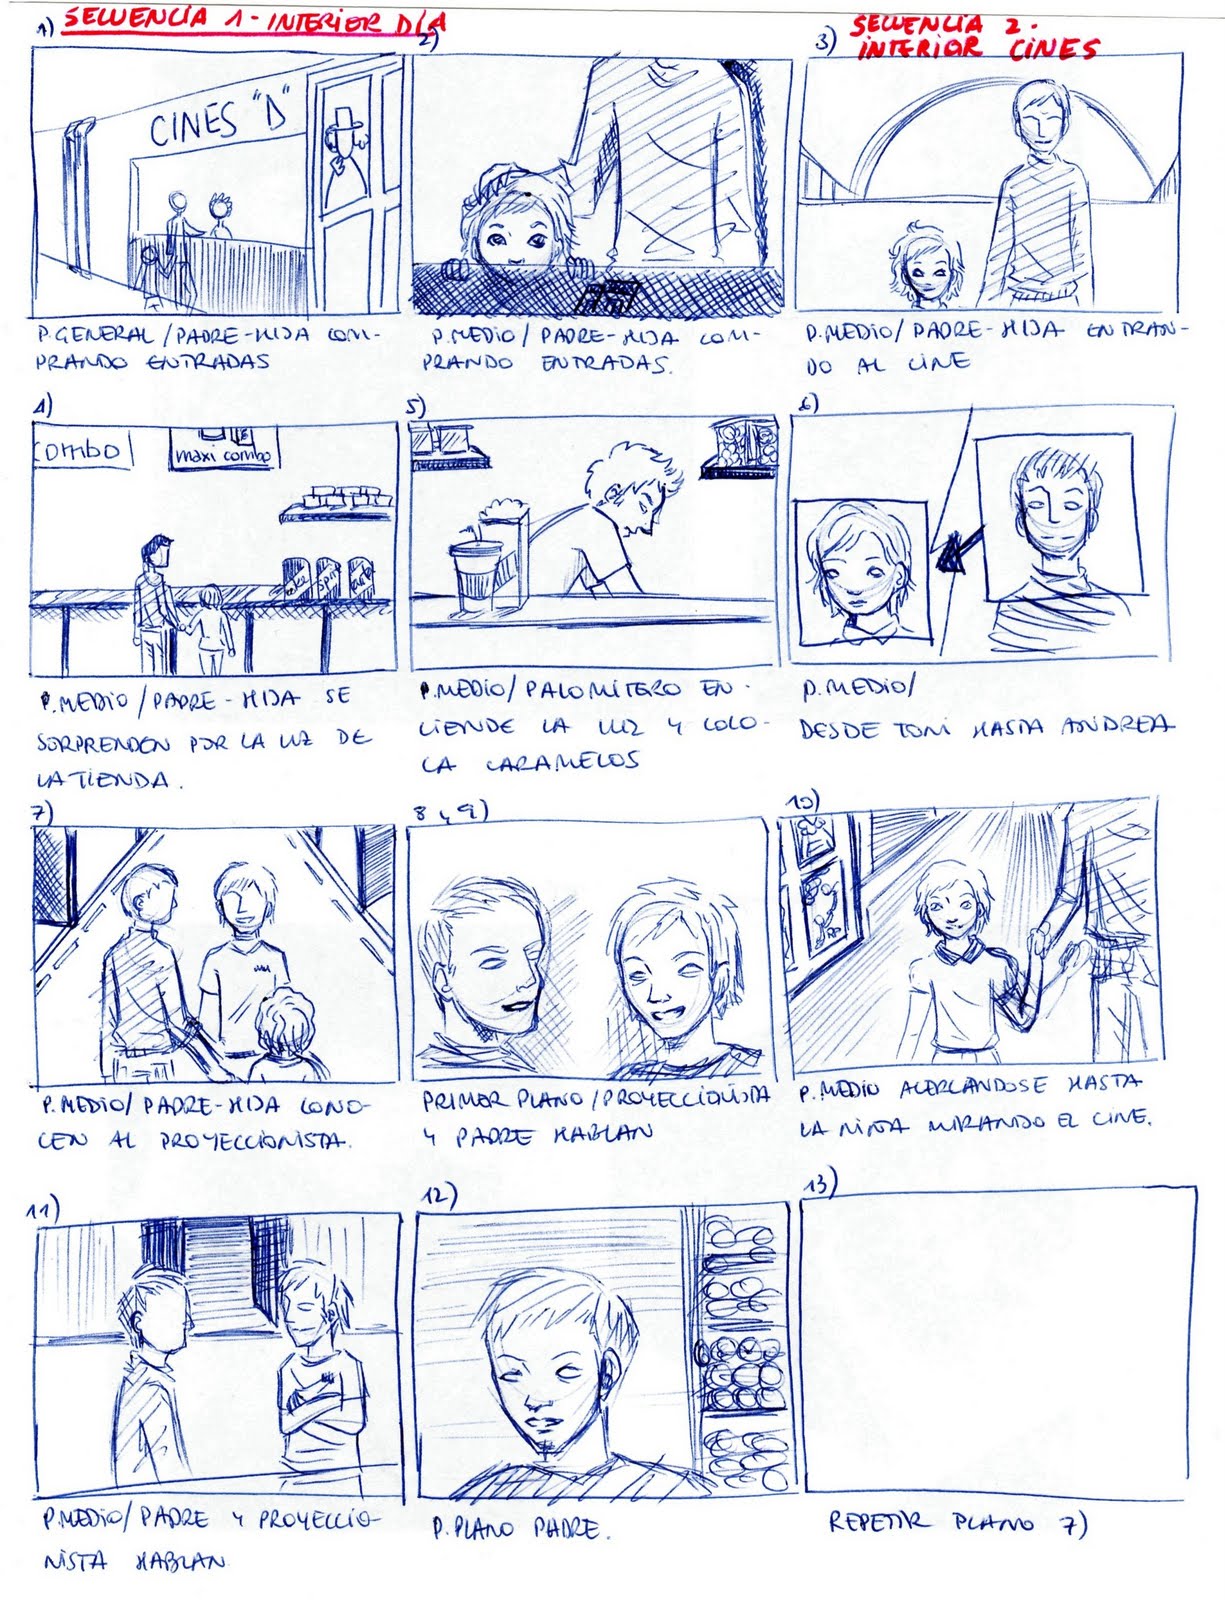 1) SECUENCIA 1 - INTERIOR DÍA
2)
3) SECUENCIA 2 -
INTERIOR CINES
CINES "D"
P. GENERAL / PADRE-HIJA COM-
PRANDO ENTRADAS
P. MEDIO / PADRE-HIJA COM-
PRANDO ENTRADAS.
P. MEDIO / PADRE-HIJA ENTRAN-
DO AL CINE
4)
combo
maxi combo
5)
6)
P. MEDIO / PADRE-HIJA SE
SORPRENDEN POR LA LUZ DE
LA TIENDA.
P. MEDIO / PALOMITERO EN-
CIENDE LA LUZ Y COLO-
CA CARAMELOS
P. MEDIO /
DESDE TONI HASTA ANDREA
7)
8 y 9)
10)
P. MEDIO / PADRE-HIJA CONO-
CEN AL PROYECCIONISTA.
PRIMER PLANO / PROYECCIONISTA
Y PADRE HABLAN
P. MEDIO ACERCÁNDOSE HASTA
LA NIÑA MIRANDO EL CINE.
11)
12)
13)
P. MEDIO / PADRE Y PROYECCIO-
NISTA HABLAN
P. PLANO PADRE.
REPETIR PLANO 7)